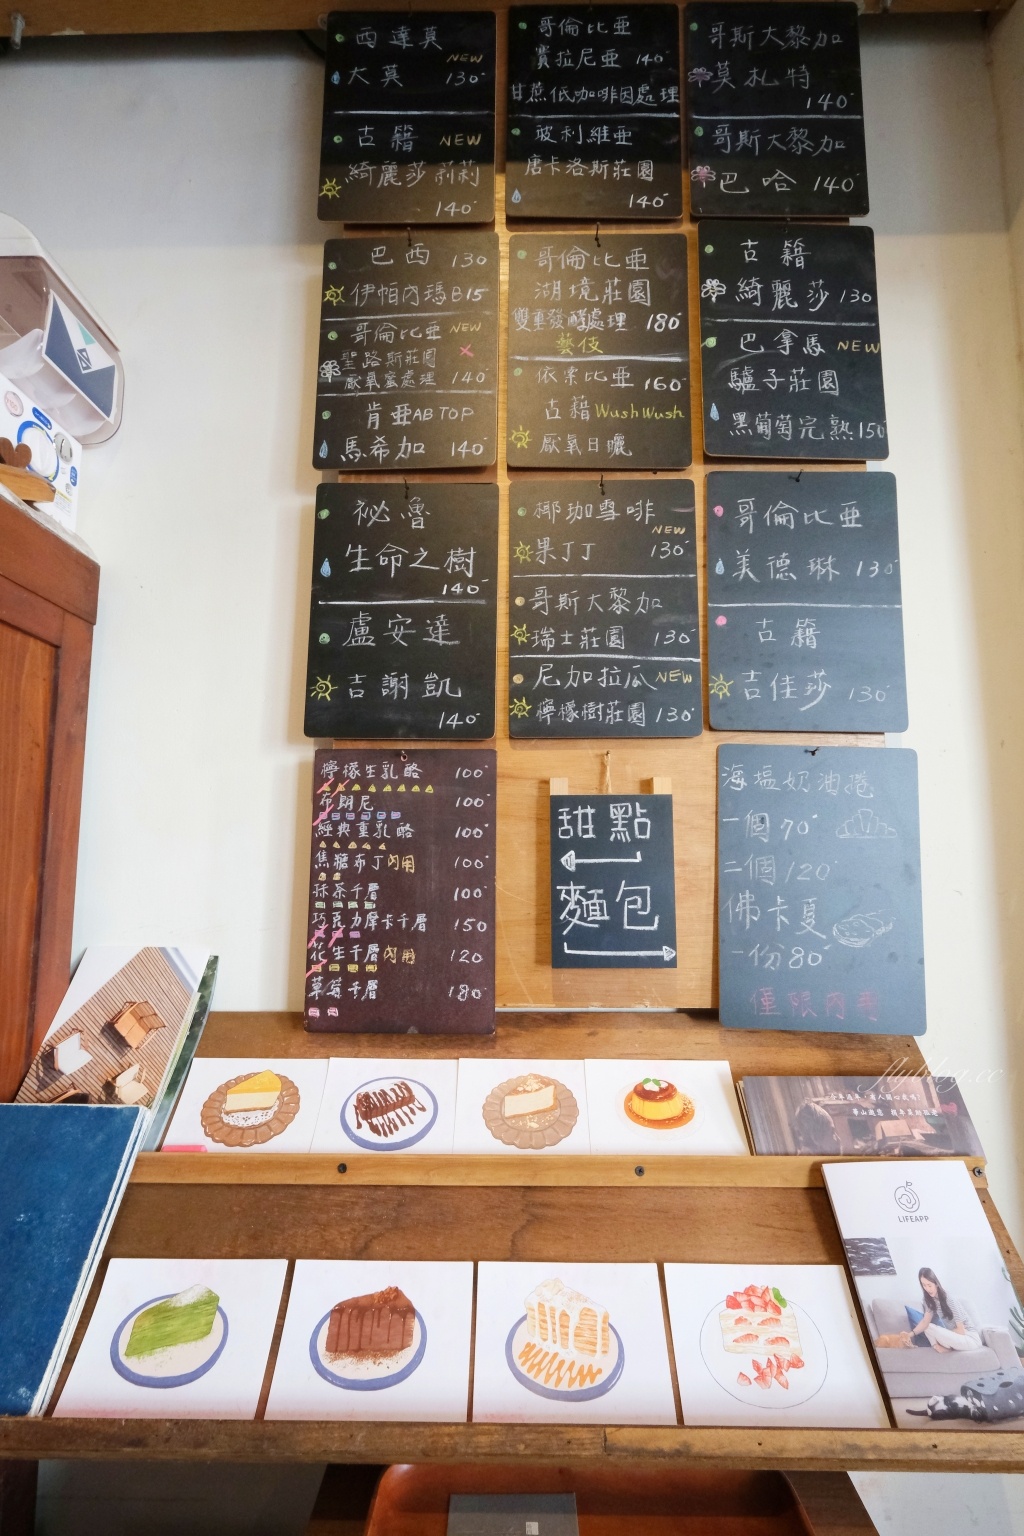 西達莫
NEW
大莫 130
古籍 NEW
綺麗莎莉莉
140
哥倫比亞
賽拉尼亞 140
甘蔗低咖啡因處理
玻利維亞
唐卡洛斯莊園
140
哥斯大黎加
莫札特
140
哥斯大黎加
巴哈 140
巴西 130
伊帕內瑪B15
哥倫比亞 NEW
聖路斯莊園
厭氧蜜處理 140
肯亞AB TOP
馬希加 140
哥倫比亞
湖境莊園
雙重發酵處理 180
藝伎
依索比亞 160
古籍 WushWush
厭氧日曬
古籍
綺麗莎 130
巴拿馬 NEW
驢子莊園
黑葡萄完熟 150
祕魯
生命之樹
140
盧安達
吉謝凱
140
椰珈雪啡
NEW
果丁丁 130
哥斯大黎加
瑞士莊園 130
尼加拉瓜 NEW
檸檬樹莊園 130
哥倫比亞
美德琳 130
古籍
吉佳莎 130
檸檬生乳酪 100
布朗尼 100
經典重乳酪 100
焦糖布丁內用 100
抹茶千層 100
巧克力摩卡千層 150
花生千層內用 120
草莓千層 180
甜點
麵包
海塩奶油捲
一個 70
二個 120
佛卡夏
一份 80
僅限內用
flyblog.cc
LIFEAPP